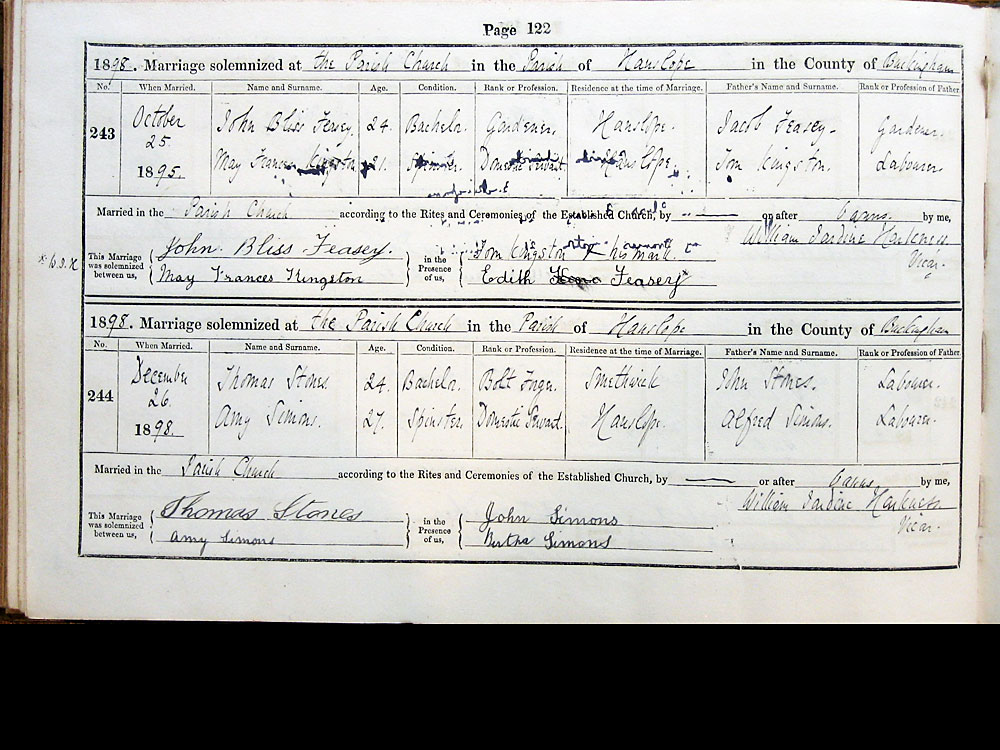 Page 122
1898. Marriage solemnized at the Parish Church in the Parish of Hanslope in the County of Buckingham
No. When Married. Name and Surname. Age. Condition. Rank or Profession. Residence at the time of Marriage. Father's Name and Surname. Rank or Profession of Father.
243 October 25. 1895. John Bliss Feasey. 24. Bachelor. Gardener. Hanslope. Jacob Feasey. Gardener.
May Frances Kingston 21. Spinster. Domestic Servant. Hanslope. Tom Kingston. Labourer.
Married in the Parish Church according to the Rites and Ceremonies of the Established Church, by — or after Banns by me,
This Marriage was solemnized between us, John Bliss Feasey. in the Presence of us, Tom Kingston X his mark. William Jardine Harkness
May Frances Kingston Edith Feasey Vicar.
1898. Marriage solemnized at the Parish Church in the Parish of Hanslope in the County of Buckingham
No. When Married. Name and Surname. Age. Condition. Rank or Profession. Residence at the time of Marriage. Father's Name and Surname. Rank or Profession of Father.
244 December 26. 1898. Thomas Stones 24. Bachelor. Bolt Forger. Smethwick John Stones. Labourer.
Amy Simons. 27. Spinster. Domestic Servant. Hanslope. Alfred Simons. Labourer.
Married in the Parish Church according to the Rites and Ceremonies of the Established Church, by — or after Banns by me,
This Marriage was solemnized between us, Thomas Stones in the Presence of us, John Simons William Jardine Harkness
Amy Simons Bertha Simons Vicar.